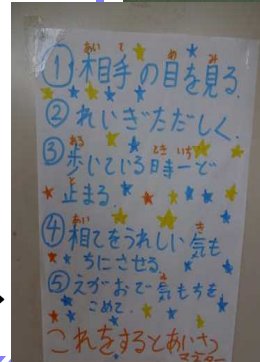 ①相手の目を見る。
②れいぎただしく。
③歩いている時一ど
止まる。
④相てをうれしい気も
ちにさせる。
⑤えがおで気もちを
こめて。
これをするとあいさつ
マスター